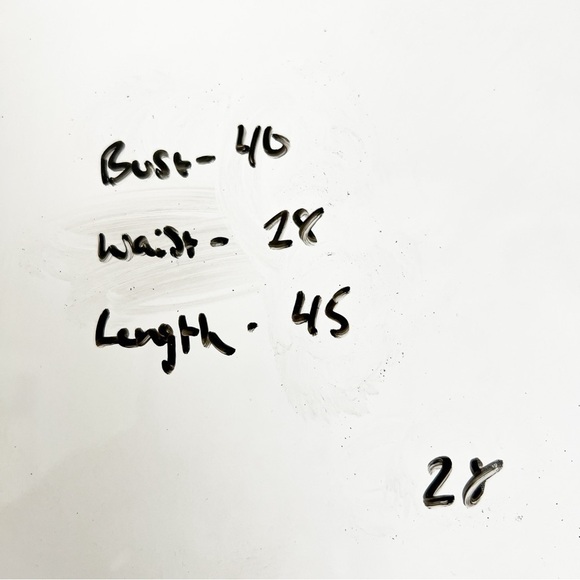 Bust- 40
Waist- 28
Length- 45
28